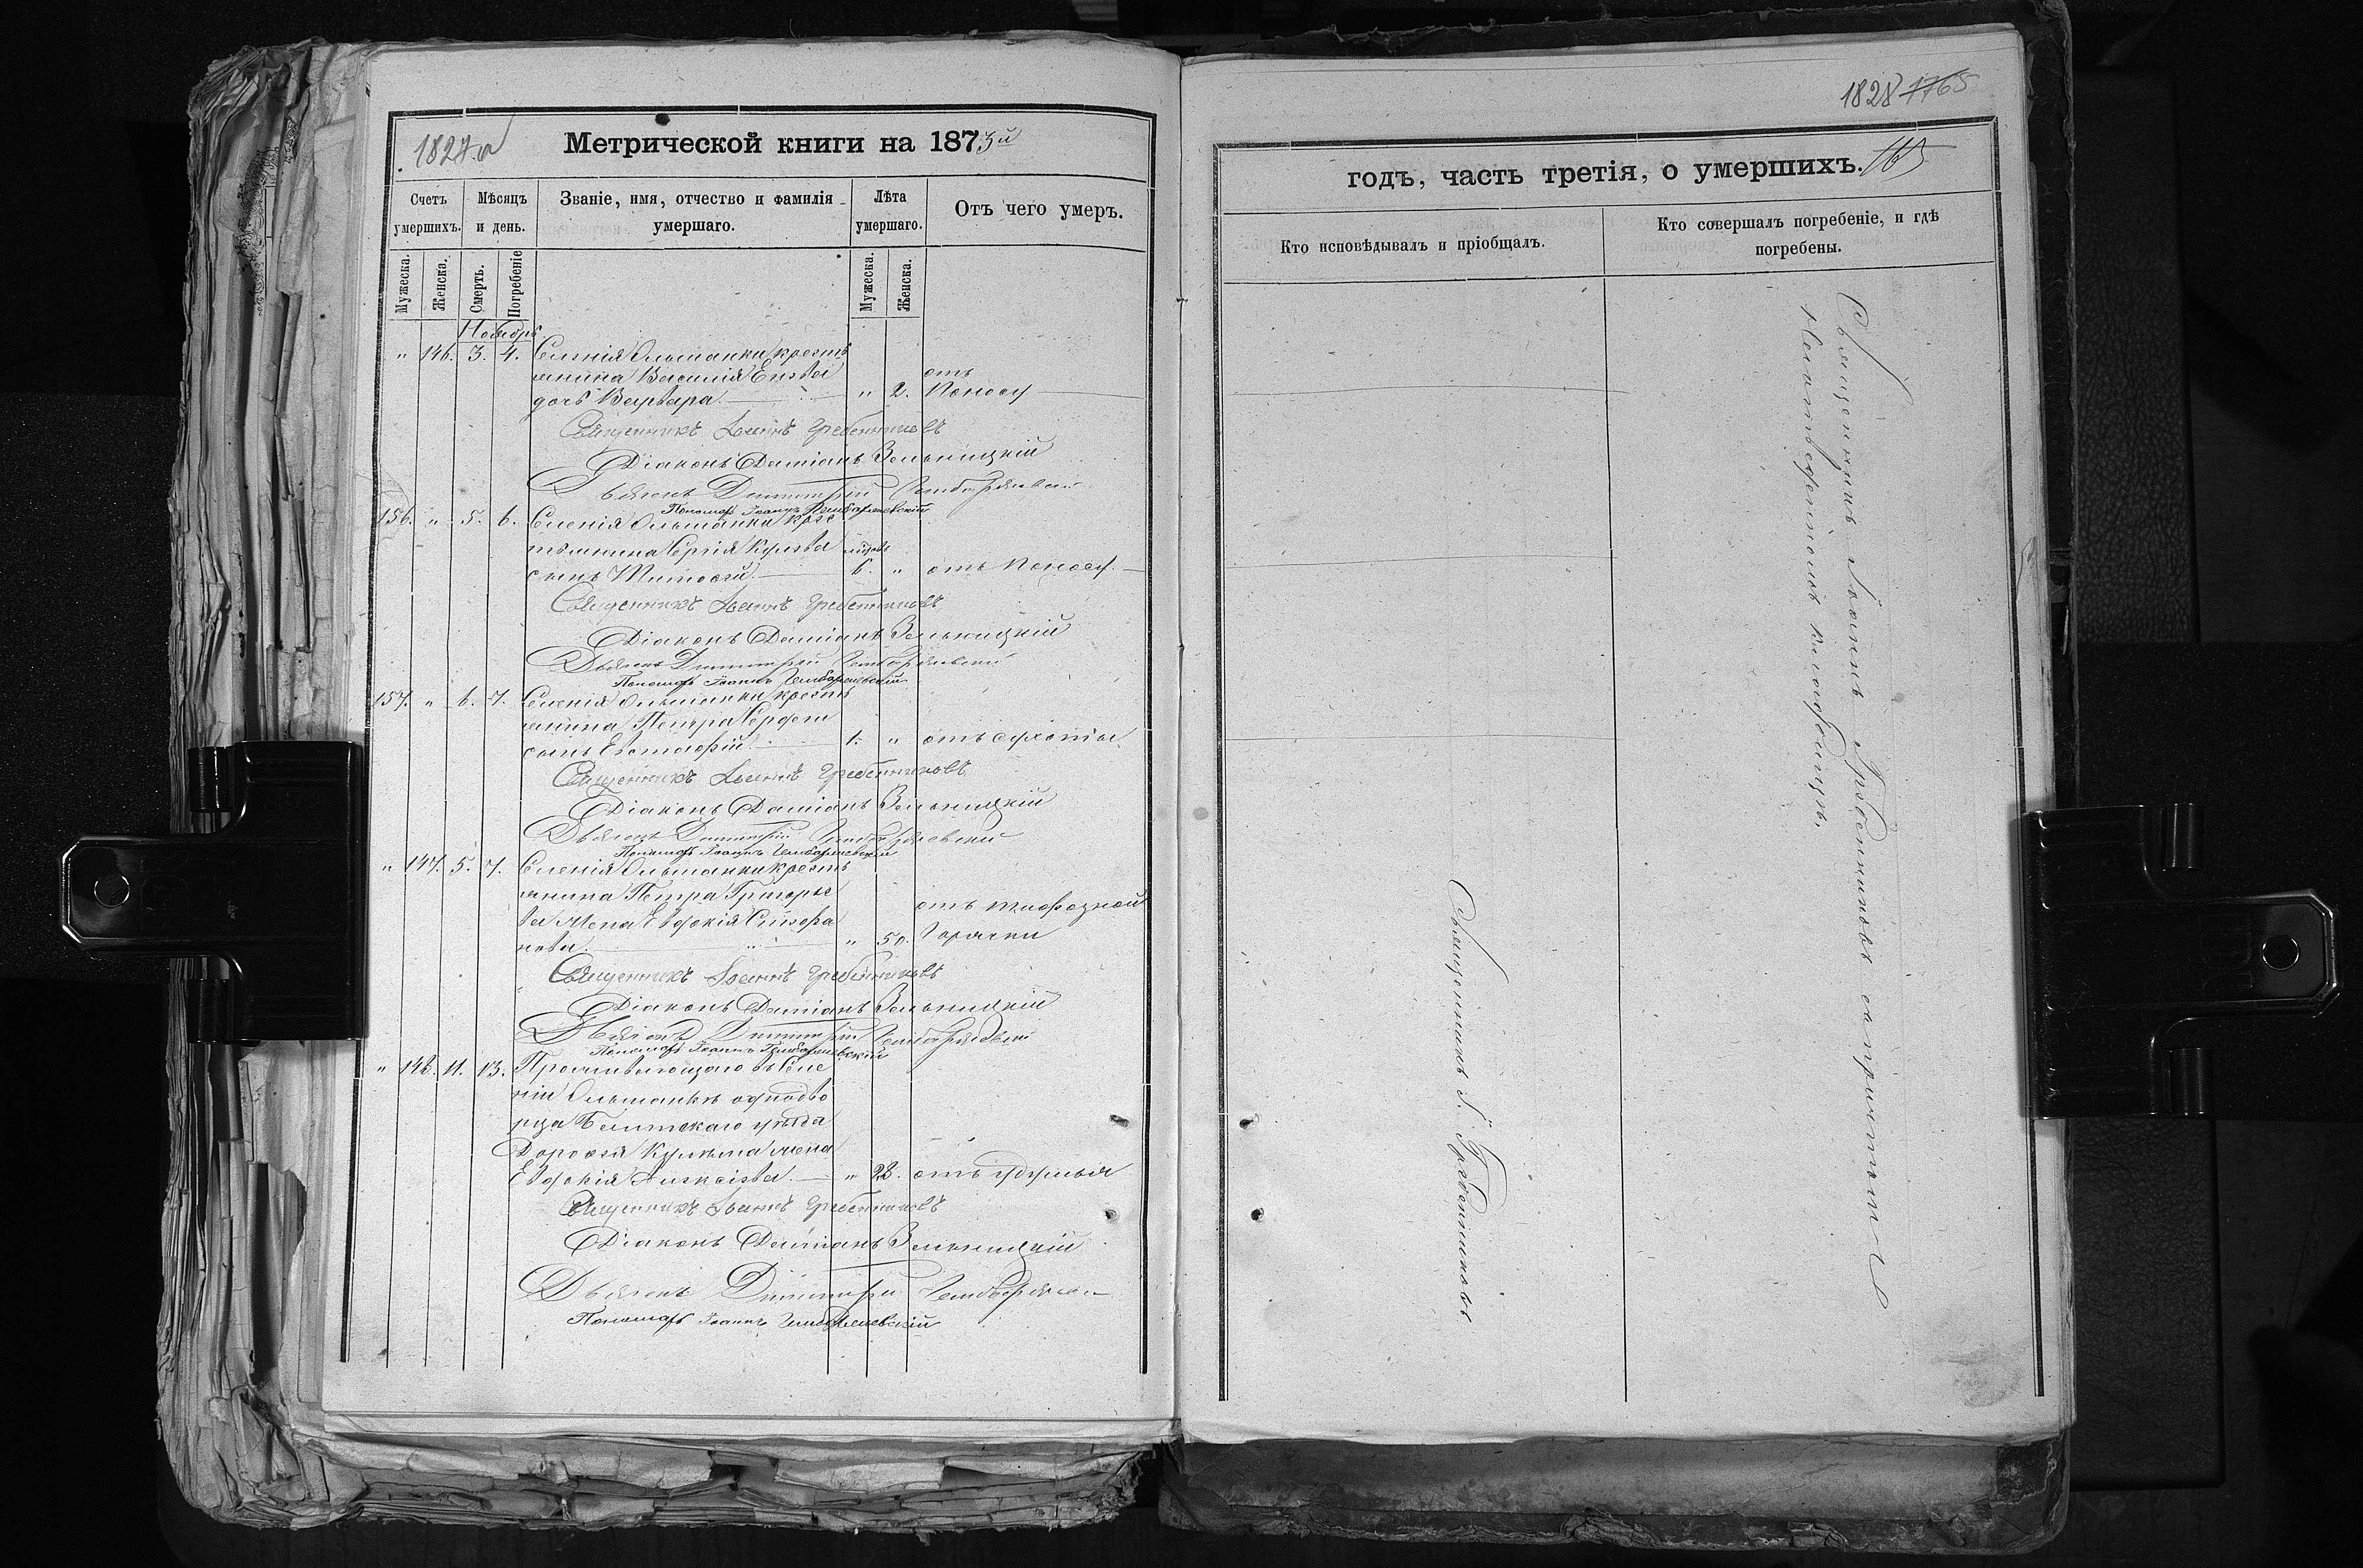 1827.об
Метрической книги на 1873й
Счетъ умершихъ.
Мѣсяцъ и день.
Званіе, имя, отчество и фамилія умершаго.
Лѣта умершаго.
Отъ чего умеръ.
Мужеска.
Женска.
Смерть.
Погребеніе
Мужеска.
Женска.
Ноябрь
" 146. 3. 4. Селенія Ольшанки кресть
янина Василія
отъ
дочь Варвара " 2. Поносу
Священникъ Іоаннъ Гребенниковъ
Діаконъ Даміанъ Зельницкій
Дьячекъ Димитрій
Пономарь Іоаннъ
156. " 5. 6. Селенія Ольшанки крес
тьянина Сергія
сынъ Тимоѳей 6. " отъ Поносу
Священникъ Іоаннъ Гребенниковъ
Діаконъ Даміанъ Зельницкій
Дьячекъ Димитрій
Пономарь Іоаннъ
157. " 6. 7. Селенія Ольшанки кресть
янина Петра
сынъ Евстафій 1. " отъ сухоты
Священникъ Іоаннъ Гребенниковъ
Діаконъ Даміанъ Зельницкій
Дьячекъ Димитрій
Пономарь Іоаннъ
" 147. 5. 7. Селенія Ольшанки кресть
янина Петра Григорье
ва жена Евдокія Стефа
отъ тифозной
нова " 50. Горячки
Священникъ Іоаннъ Гребенниковъ
Діаконъ Даміанъ Зельницкій
Дьячекъ Димитрій
Пономарь Іоаннъ
" 148. 11. 13. Проживающаго въ Селе
ніи Ольшанкѣ однодво
рца уѣзда
Дороѳея жена
Евдокія " 28. отъ удушья
Священникъ Іоаннъ Гребенниковъ
Діаконъ Даміанъ Зельницкій
Дьячекъ Димитрій
Пономарь Іоаннъ
1828 1765
годъ, часть третія, о умершихъ. 165
Кто исповѣдывалъ и пріобщалъ.
Кто совершалъ погребеніе, и гдѣ
погребены.
Священникъ І. Гребенниковъ
Священникъ Іоаннъ Гребенниковъ съ причтомъ
кладбищѣ.